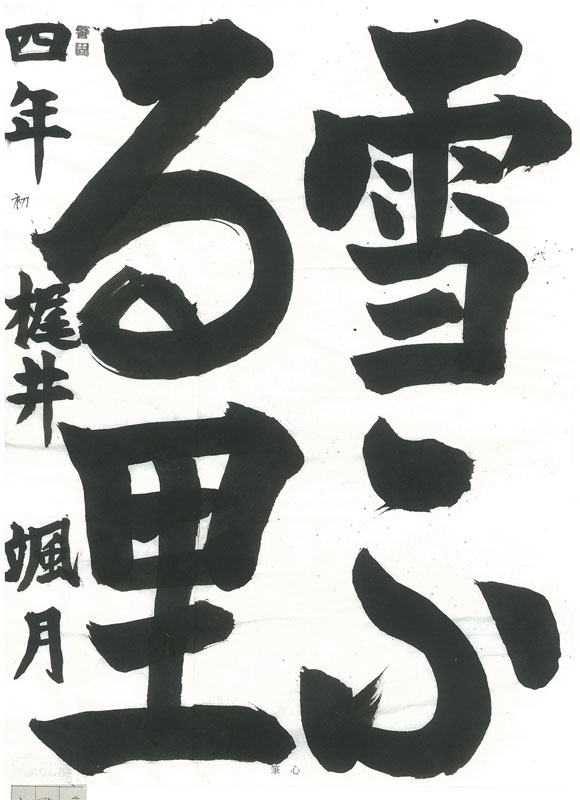 雪ふ
る里
四年 梶井 颯月
初
警固
心筆